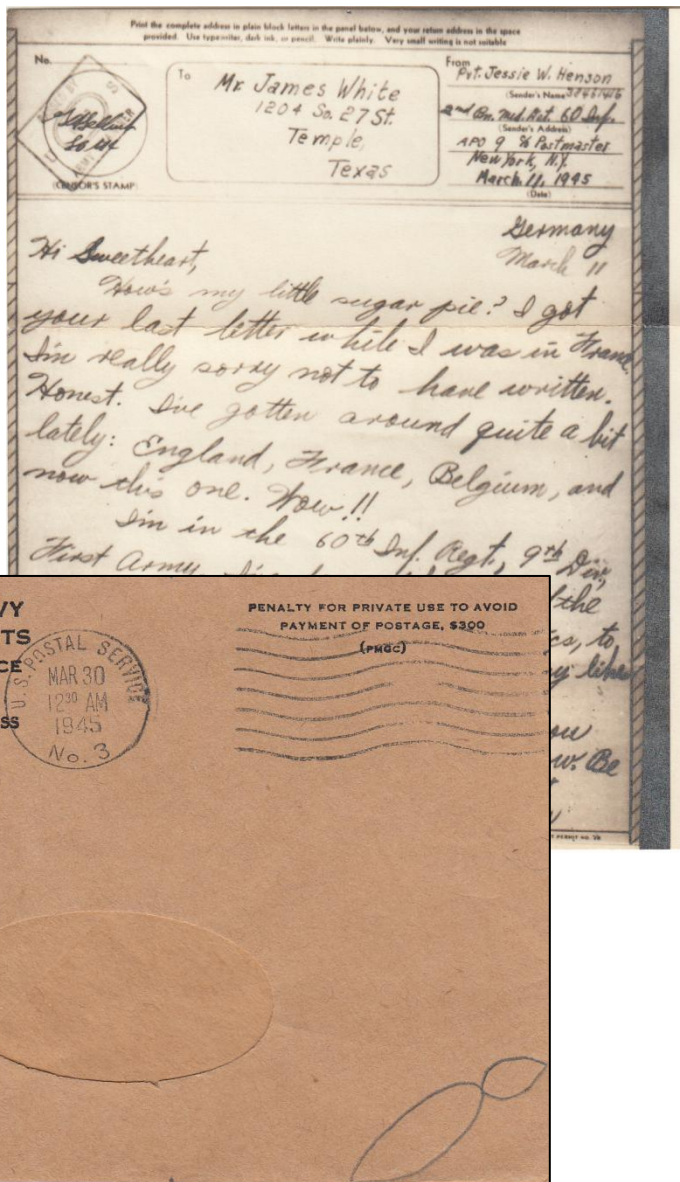 Print the complete address in plain block letters in the panel below, and your return address in the space
provided. Use typewriter, dark ink, or pencil. Write plainly. Very small writing is not suitable
No.
(CENSOR'S STAMP)
To
Mr. James White
1204 So. 27 St.
Temple,
Texas
From
Pvt. Jessie W. Henson
(Sender's Name)
2nd Bn. Med. Det. 60 Inf.
(Sender's Address)
APO 9 % Postmaster
New York, N.Y.
March 11, 1945
(Date)
Germany
March 11
Hi Sweetheart,
How's my little sugar pie? I got
your last letter while I was in France.
I'm really sorry not to have written.
Honest. I've gotten around quite a bit
lately: England, France, Belgium, and
now this one. Wow!!
I'm in the 60th Inf. Regt., 9th Div,
First Army.
the
to
like
w. Be
VY
TS
CE
SS
U.S. POSTAL SERVICE
MAR 30
12 30 AM
1945
No. 3
PENALTY FOR PRIVATE USE TO AVOID
PAYMENT OF POSTAGE, $300
(PMGC)